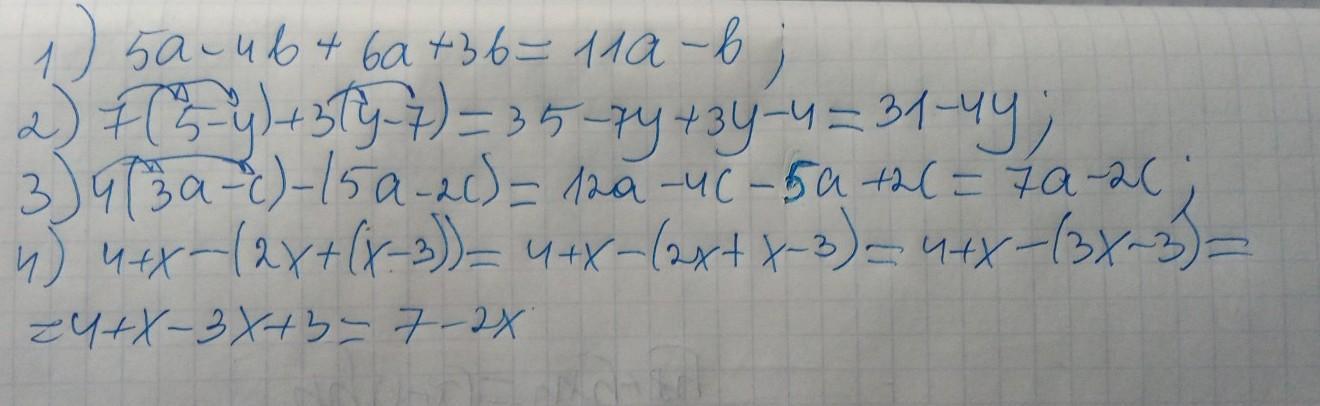 1) 5a-4b+6a+3b=11a-b;
2) 7(5-y)+3(y-7)=35-7y+3y-4=31-4y;
3) 4(3a-c)-(5a-2c)=12a-4c-5a+2c=7a-2c;
4) 4+x-(2x+(x-3))=4+x-(2x+x-3)=4+x-(3x-3)=
=4+x-3x+3=7-2x